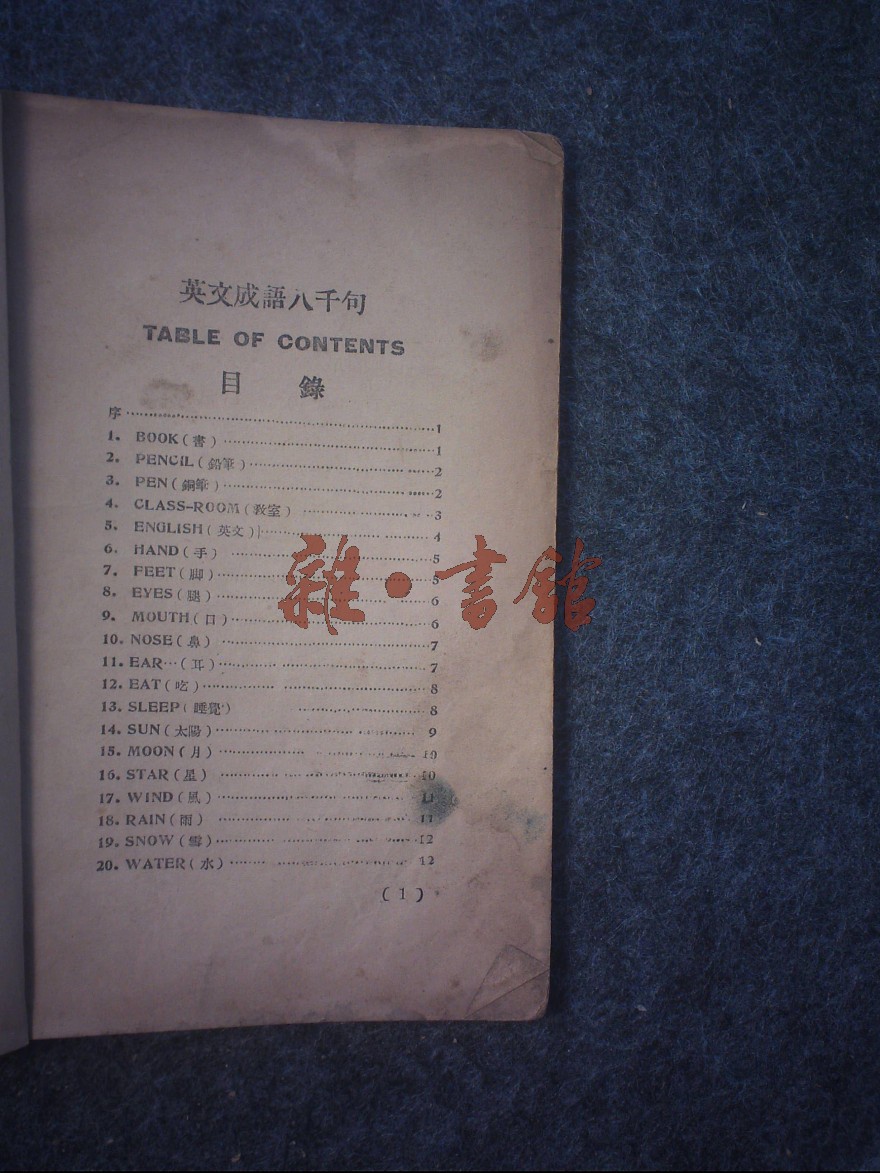 英文成語八千句
TABLE OF CONTENTS
目 錄
序 1
1. BOOK(書) 1
2. PENCIL(鉛筆) 2
3. PEN(鋼筆) 2
4. CLASS-ROOM(教室) 3
5. ENGLISH(英文) 4
6. HAND(手) 5
7. FEET(脚) 5
8. EYES( ) 6
9. MOUTH(口) 6
10. NOSE(鼻) 7
11. EAR…(耳) 7
12. EAT(吃) 8
13. SLEEP(睡覺) 8
14. SUN(太陽) 9
15. MOON(月) 10
16. STAR(星) 10
17. WIND(風) 11
18. RAIN(雨) 11
19. SNOW(雪) 12
20. WATER(水) 12
(1)
雜·書館